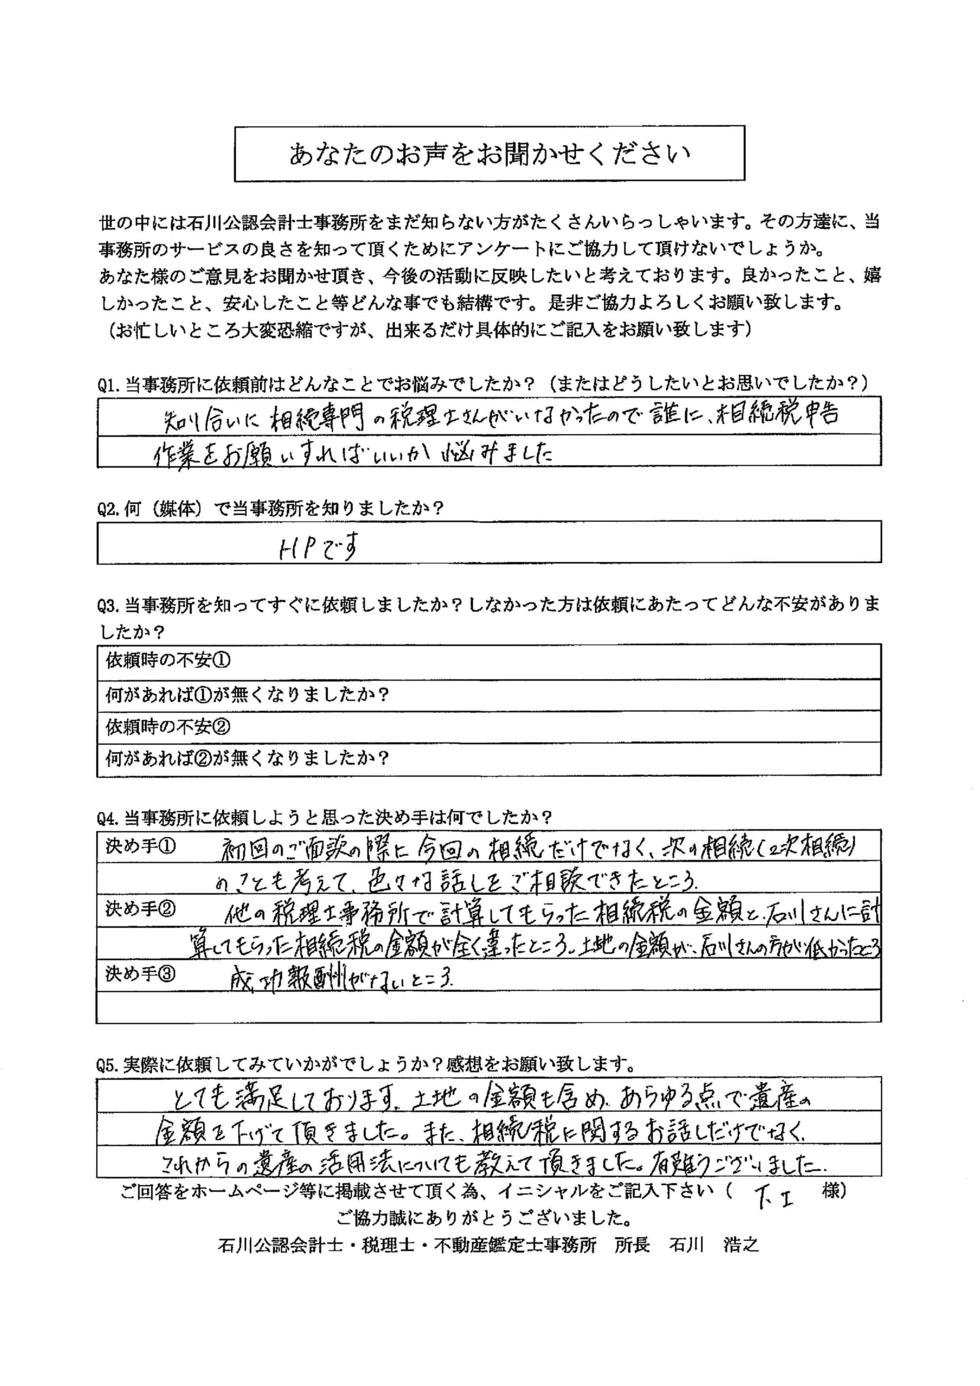 あなたのお声をお聞かせください
世の中には石川公認会計士事務所をまだ知らない方がたくさんいらっしゃいます。その方達に、当
事務所のサービスの良さを知って頂くためにアンケートにご協力して頂けないでしょうか。
あなた様のご意見をお聞かせ頂き、今後の活動に反映したいと考えております。良かったこと、嬉
しかったこと、安心したこと等どんな事でも結構です。是非ご協力よろしくお願い致します。
（お忙しいところ大変恐縮ですが、出来るだけ具体的にご記入をお願い致します）
Q1.当事務所に依頼前はどんなことでお悩みでしたか？（またはどうしたいとお思いでしたか？）
知り合いに相続専門の税理士さんがいなかったので誰に、相続税申告
作業をお願いすればいいか悩みました
Q2.何（媒体）で当事務所を知りましたか？
HPです
Q3.当事務所を知ってすぐに依頼しましたか？しなかった方は依頼にあたってどんな不安がありま
したか？
依頼時の不安①
何があれば①が無くなりましたか？
依頼時の不安②
何があれば②が無くなりましたか？
Q4.当事務所に依頼しようと思った決め手は何でしたか？
決め手① 初回のご面談の際に今回の相続だけでなく、次の相続（2次相続）
のことも考えて、色々な話しをご相談できたところ.
決め手② 他の税理士事務所で計算してもらった相続税の金額と、石川さんに計
算してもらった相続税の金額が全く違ったところ。土地の金額が、石川さんの方が低かったところ
決め手③ 成功報酬がないところ.
Q5.実際に依頼してみていかがでしょうか？感想をお願い致します。
とても満足しております. 土地の金額も含め、あらゆる点で遺産の
金額を下げて頂きました。また、相続税に関するお話しだけでなく、
これからの遺産の活用法についても教えて頂きました。有難うございました.
ご回答をホームページ等に掲載させて頂く為、イニシャルをご記入下さい（ T.I 様）
ご協力誠にありがとうございました。
石川公認会計士・税理士・不動産鑑定士事務所 所長 石川 浩之